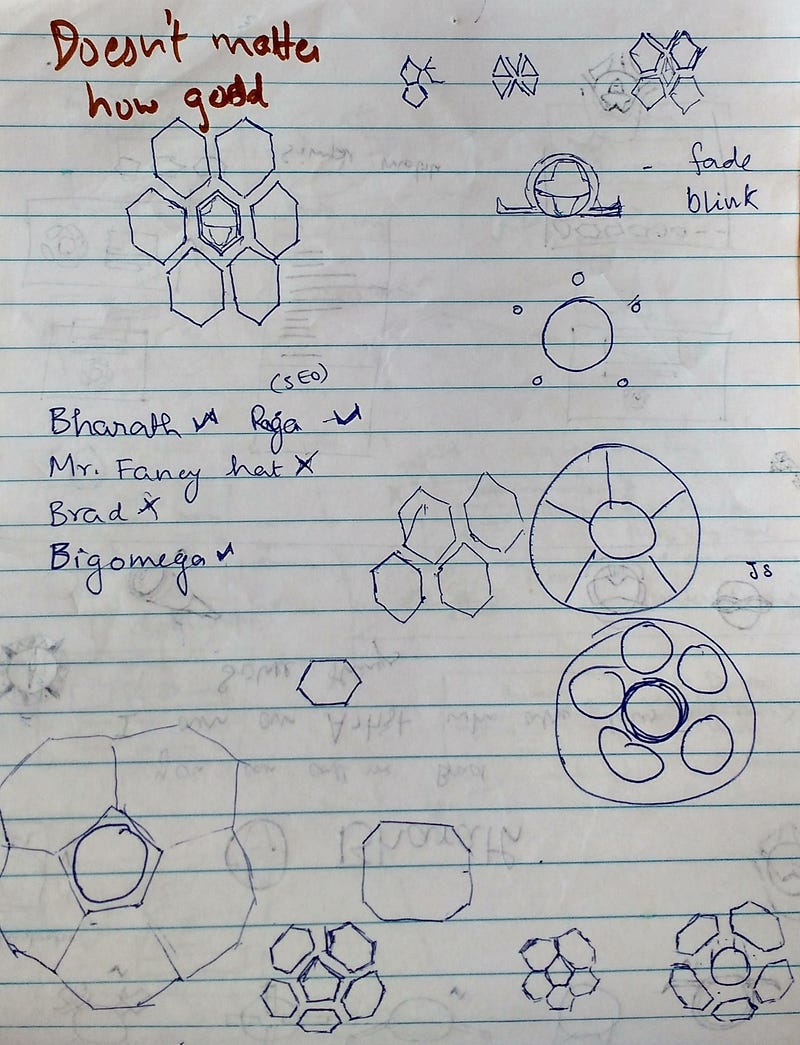 Doesn't matter
how good
- fade
blink
(SEO)
Bharath ✓ Raja ✓
Mr. Fancy hat ✗
Brad ✗
Bigomega ✓
JS